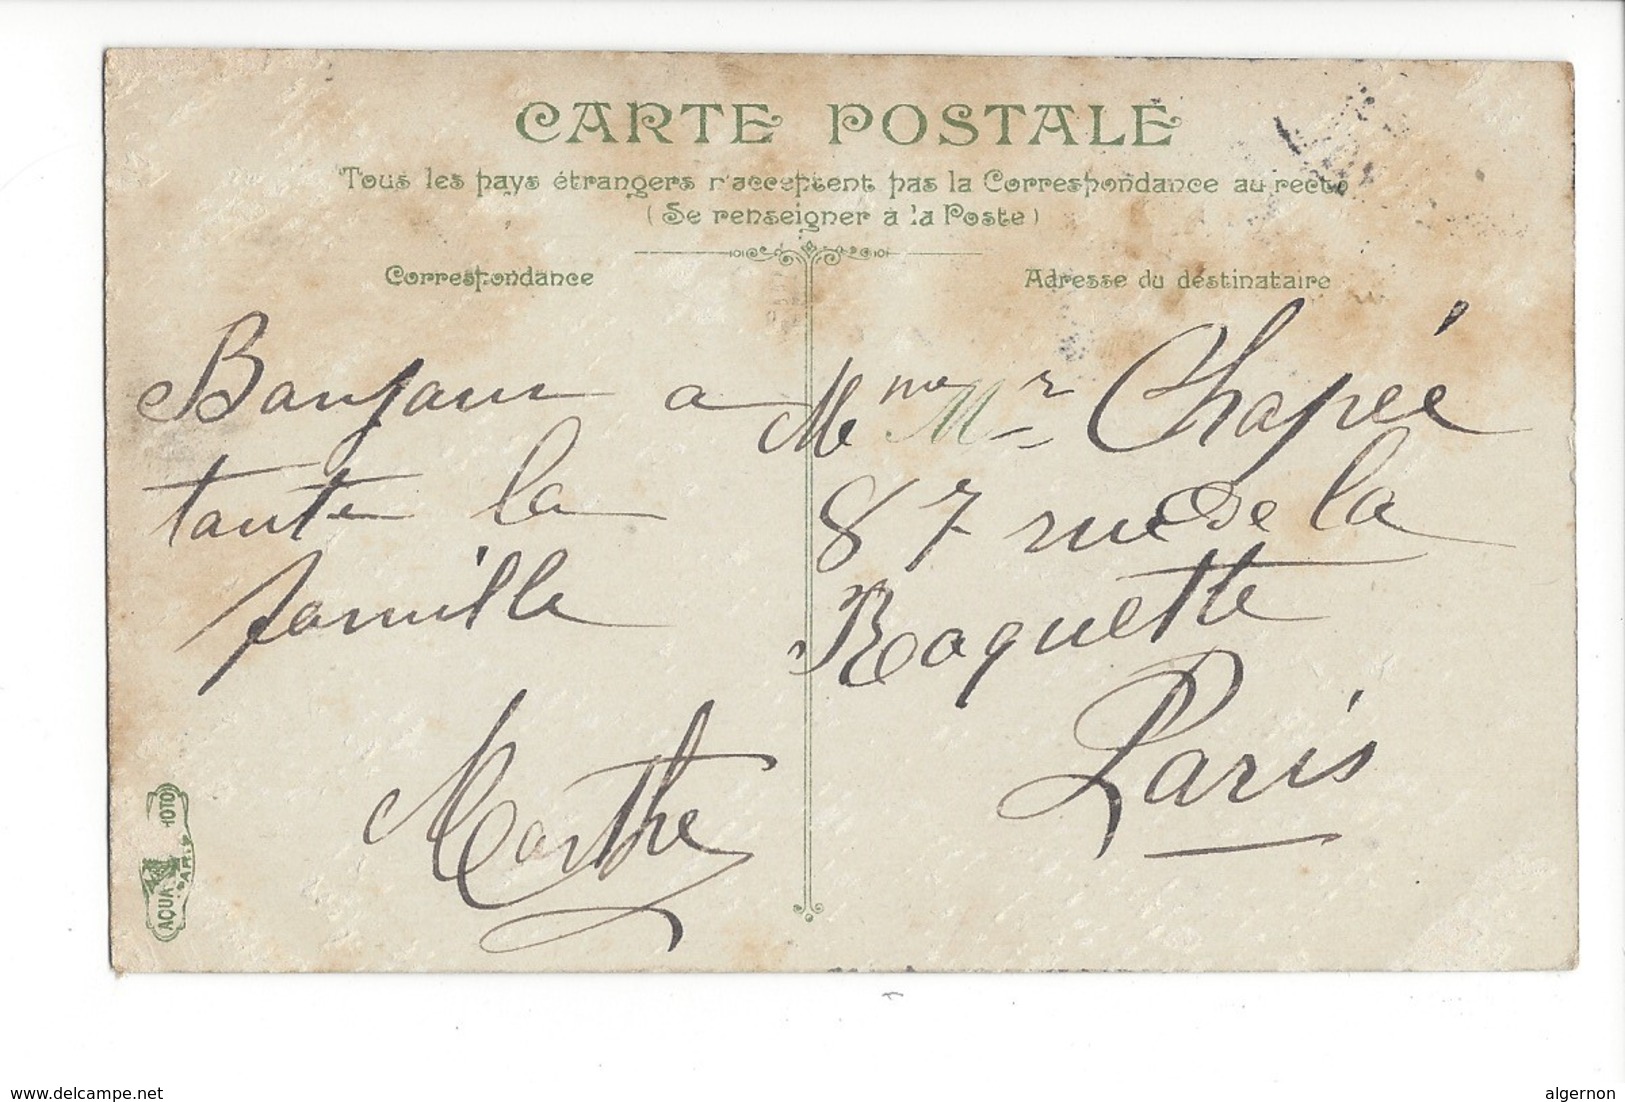 CARTE POSTALE
Tous les pays étrangers n'acceptent pas la Correspondance au recto
(Se renseigner à la Poste)
Correspondance
Adresse du destinataire
Bonjour a
toute la
famille
Marthe
Mme Mr Chapeé
87 rue de la
Roquette
Paris
AQUA PHOTO
www.delcampe.net
algernon